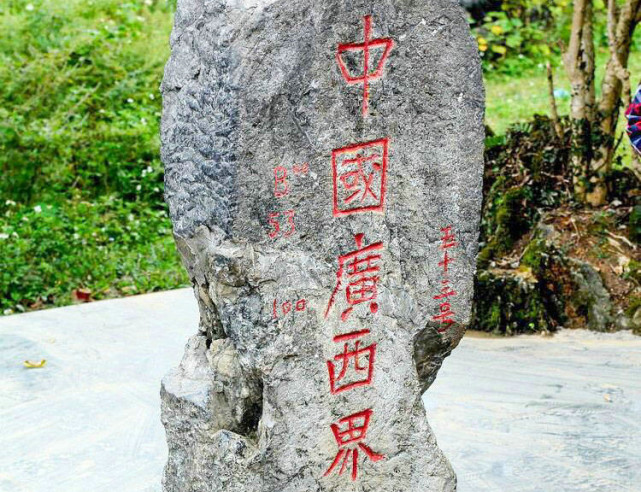 五十三号
中國廣西界
B
53
100